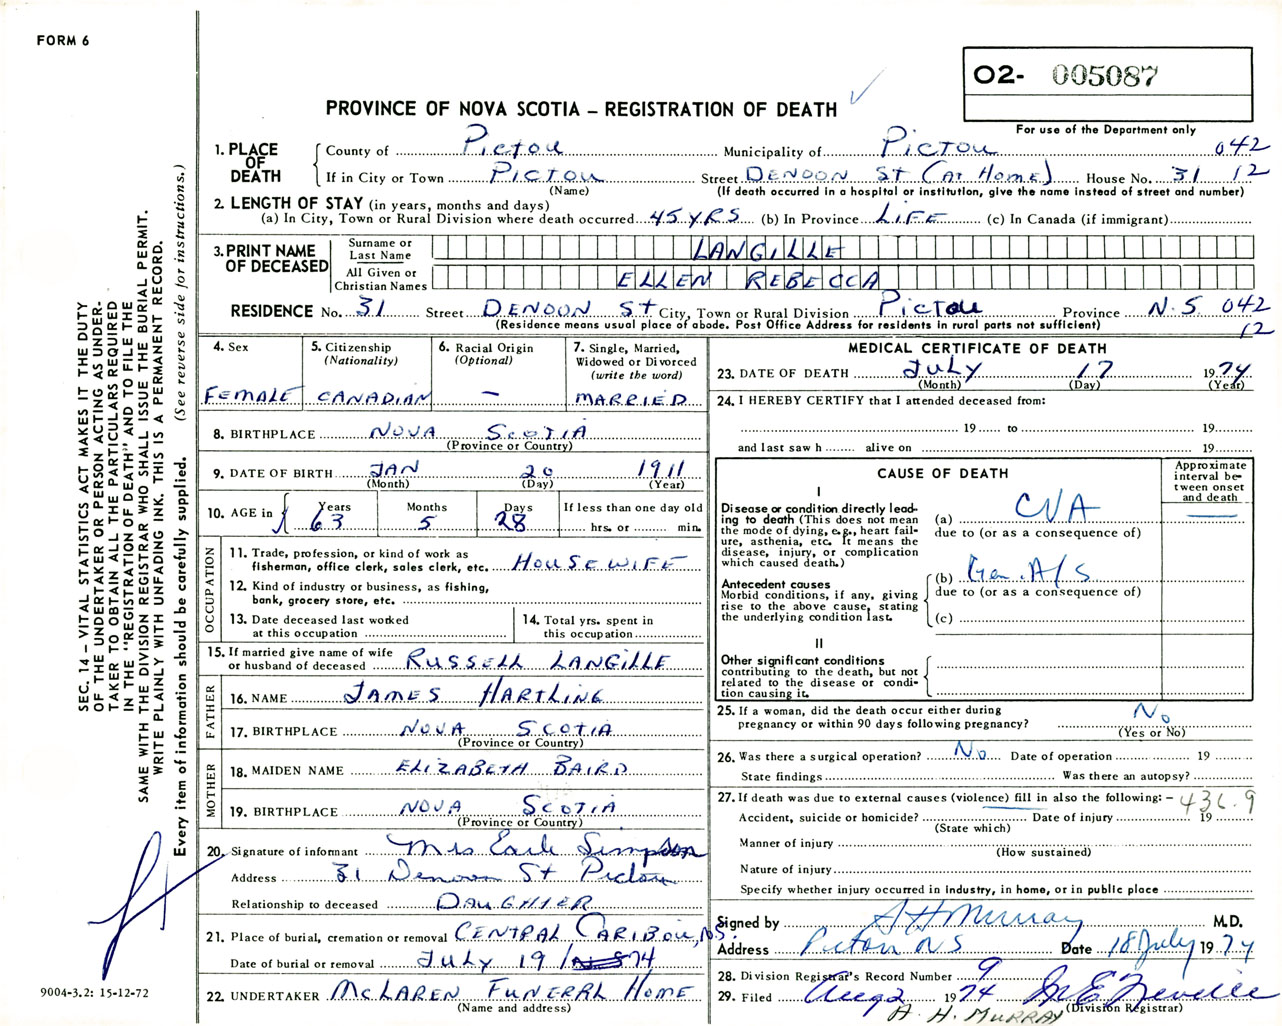 FORM 6
O2- 005087
PROVINCE OF NOVA SCOTIA – REGISTRATION OF DEATH
For use of the Department only
1. PLACE OF DEATH
County of Pictou Municipality of Pictou 042
If in City or Town Pictou Street DENOON ST (AT HOME) House No. 31 12
(Name) (If death occurred in a hospital or institution, give the name instead of street and number)
2. LENGTH OF STAY (in years, months and days)
(a) In City, Town or Rural Division where death occurred 45 YRS (b) In Province LIFE (c) In Canada (if immigrant)
3. PRINT NAME OF DECEASED
Surname or Last Name LANGILLE
All Given or Christian Names ELLEN REBECCA
RESIDENCE No. 31 Street DENOON ST City, Town or Rural Division Pictou Province N.S 042
(Residence means usual place of abode. Post Office Address for residents in rural parts not sufficient) 12
4. Sex
FEMALE
5. Citizenship (Nationality)
CANADIAN
6. Racial Origin (Optional)
—
7. Single, Married, Widowed or Divorced (write the word)
MARRIED
8. BIRTHPLACE NOVA SCOTIA
(Province or Country)
9. DATE OF BIRTH JAN 20 1911
(Month) (Day) (Year)
10. AGE in Years 63 Months 5 Days 28
If less than one day old
hrs. or min.
OCCUPATION
11. Trade, profession, or kind of work as
fisherman, office clerk, sales clerk, etc. HOUSEWIFE
12. Kind of industry or business, as fishing,
bank, grocery store, etc.
13. Date deceased last worked
at this occupation
14. Total yrs. spent in
this occupation
15. If married give name of wife
or husband of deceased RUSSELL LANGILLE
FATHER
16. NAME JAMES HARTLING
17. BIRTHPLACE NOVA SCOTIA
(Province or Country)
MOTHER
18. MAIDEN NAME ELIZABETH BAIRD
19. BIRTHPLACE NOVA SCOTIA
(Province or Country)
20. Signature of informant Mrs Earle Simpson
Address 31 Denoon St Pictou
Relationship to deceased DAUGHTER
21. Place of burial, cremation or removal CENTRAL CARIBOU, NS.
Date of burial or removal JULY 19/ 74
22. UNDERTAKER McLAREN FUNERAL HOME
(Name and address)
MEDICAL CERTIFICATE OF DEATH
23. DATE OF DEATH JULY 17 1974
(Month) (Day) (Year)
24. I HEREBY CERTIFY that I attended deceased from:
19 to 19
and last saw h alive on 19
CAUSE OF DEATH
Approximate interval between onset and death
I
Disease or condition directly lead-
ing to death (This does not mean
the mode of dying, e.g., heart fail-
ure, asthenia, etc. It means the
disease, injury, or complication
which caused death.)
(a) CVA —
due to (or as a consequence of)
Antecedent causes
Morbid conditions, if any, giving
rise to the above cause, stating
the underlying condition last.
(b) Gen. A/S
due to (or as a consequence of)
(c)
II
Other significant conditions
contributing to the death, but not
related to the disease or condi-
tion causing it.
25. If a woman, did the death occur either during
pregnancy or within 90 days following pregnancy? No
(Yes or No)
26. Was there a surgical operation? No Date of operation 19
State findings Was there an autopsy?
27. If death was due to external causes (violence) fill in also the following: – 436.9
Accident, suicide or homicide? Date of injury 19
(State which)
Manner of injury
(How sustained)
Nature of injury
Specify whether injury occurred in industry, in home, or in public place
Signed by A H Murray M.D.
Address Pictou NS Date 18 July 1974
28. Division Registrar's Record Number 9
29. Filed Aug 2 1974 M E Neville
(Division Registrar)
A. H. MURRAY
SEC. 14 – VITAL STATISTICS ACT MAKES IT THE DUTY
OF THE UNDERTAKER OR PERSON ACTING AS UNDER-
TAKER TO OBTAIN ALL THE PARTICULARS REQUIRED
IN THE "REGISTRATION OF DEATH" AND TO FILE THE
SAME WITH THE DIVISION REGISTRAR WHO SHALL ISSUE THE BURIAL PERMIT.
WRITE PLAINLY WITH UNFADING INK. THIS IS A PERMANENT RECORD.
Every item of information should be carefully supplied. (See reverse side for instructions.)
9004-3.2: 15-12-72